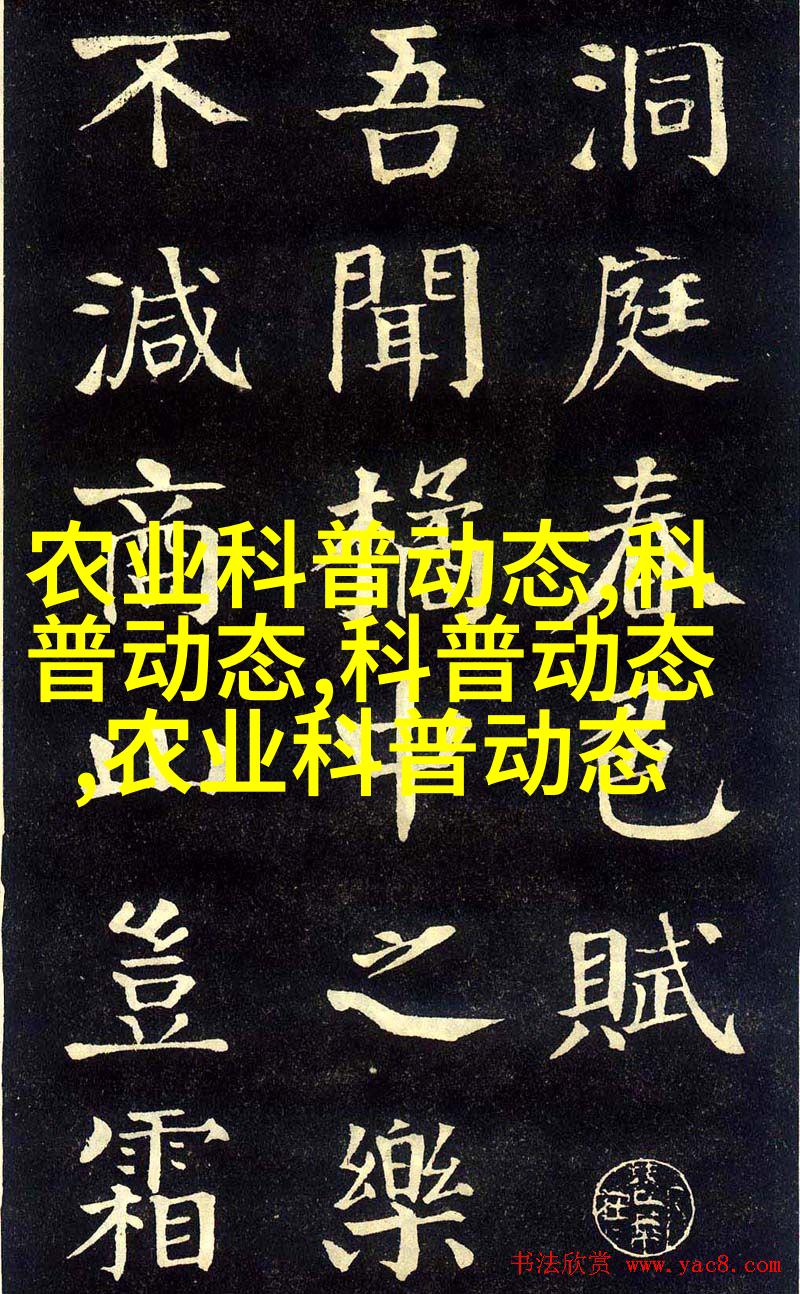 洞庭春色賦
吾聞橘中之樂
不減商山豈霜
农业科普动态,科
普动态,科普动态
,农业科普动态
书法欣赏 www.yac8.com